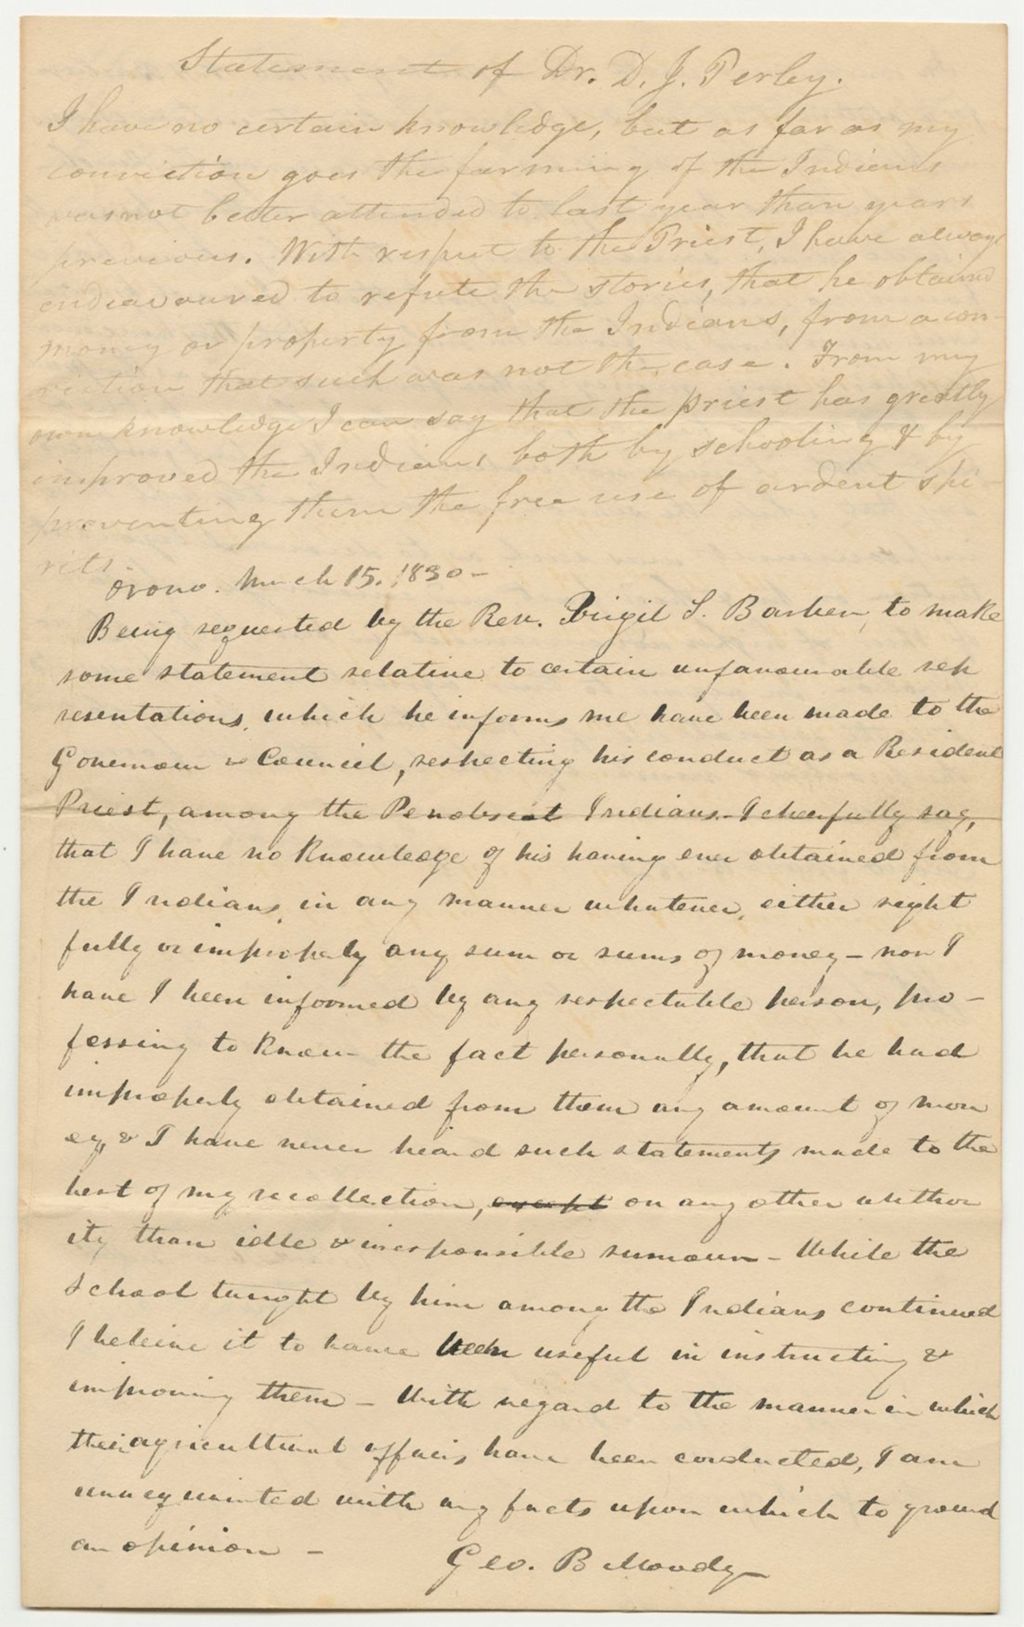 Statement of Dr. D. J. Perley.
I have no certain knowledge, but as far as my
conviction goes the farming of the Indians
was not better attended to last year than years
previous. With respect to the Priest, I have always
endeavoured to refute the stories, that he obtained
money or property from the Indians, from a con-
viction that such was not the case. From my
own knowledge I can say that the priest has greatly
improved the Indians both by schooling & by
preventing them the free use of ardent spi-
rits.
Orono. March 15. 1830 -
Being requested by the Rev. Virgil S. Barber, to make
some statement relative to certain unfavourable rep
resentations, which he informs me have been made to the
Governour & Council, respecting his conduct as a Resident
Priest, among the Penobscot Indians - I cheerfully say,
that I have no knowledge of his having ever obtained from
the Indians, in any manner whatever, either right
fully or improperly any sum or sums of money - nor I
have I been informed by any respectable person, pro -
fessing to know the fact personally, that he had
improperly obtained from them any amount of mon
ey, & I have never heard such statements made to the
best of my recollection, except on any other author
ity than idle & irresponsible rumour - While the
School taught by him among the Indians continued
I beleive it to have been useful in instructing &
improving them - With regard to the manner in which
their agricultural affairs have been conducted, I am
unacquainted with any facts upon which to ground
an opinion -
Geo. B Moody